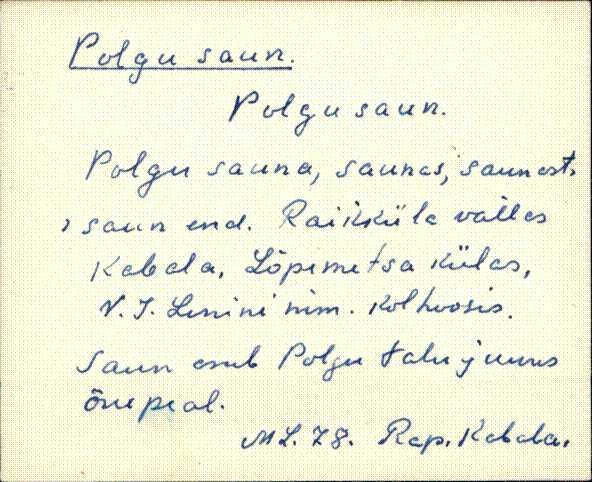 Polgu saun.
Polgu saun.
Polgu sauna, saunas, saunast,
, saun end. Raikküla vallas
Kabala, Lõpemetsa külas,
V. I. Lenini nim. kolhoosis.
Saun asub Polgu talu juures
õue peal.
ML. 78. Rap. Kabala.